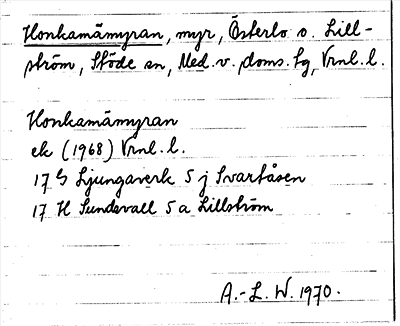 Honkamämyran, myr, Österlo o. Lill-
ström, Stöde sn, Med. v. doms. tg, Vrnl. l.
Honkamämyran
ek (1968) Vrnl. l.
17 G Ljungaverk 5 j Svartåsen
17 H Sundsvall 5 a Lillström
A.-L. W. 1970.